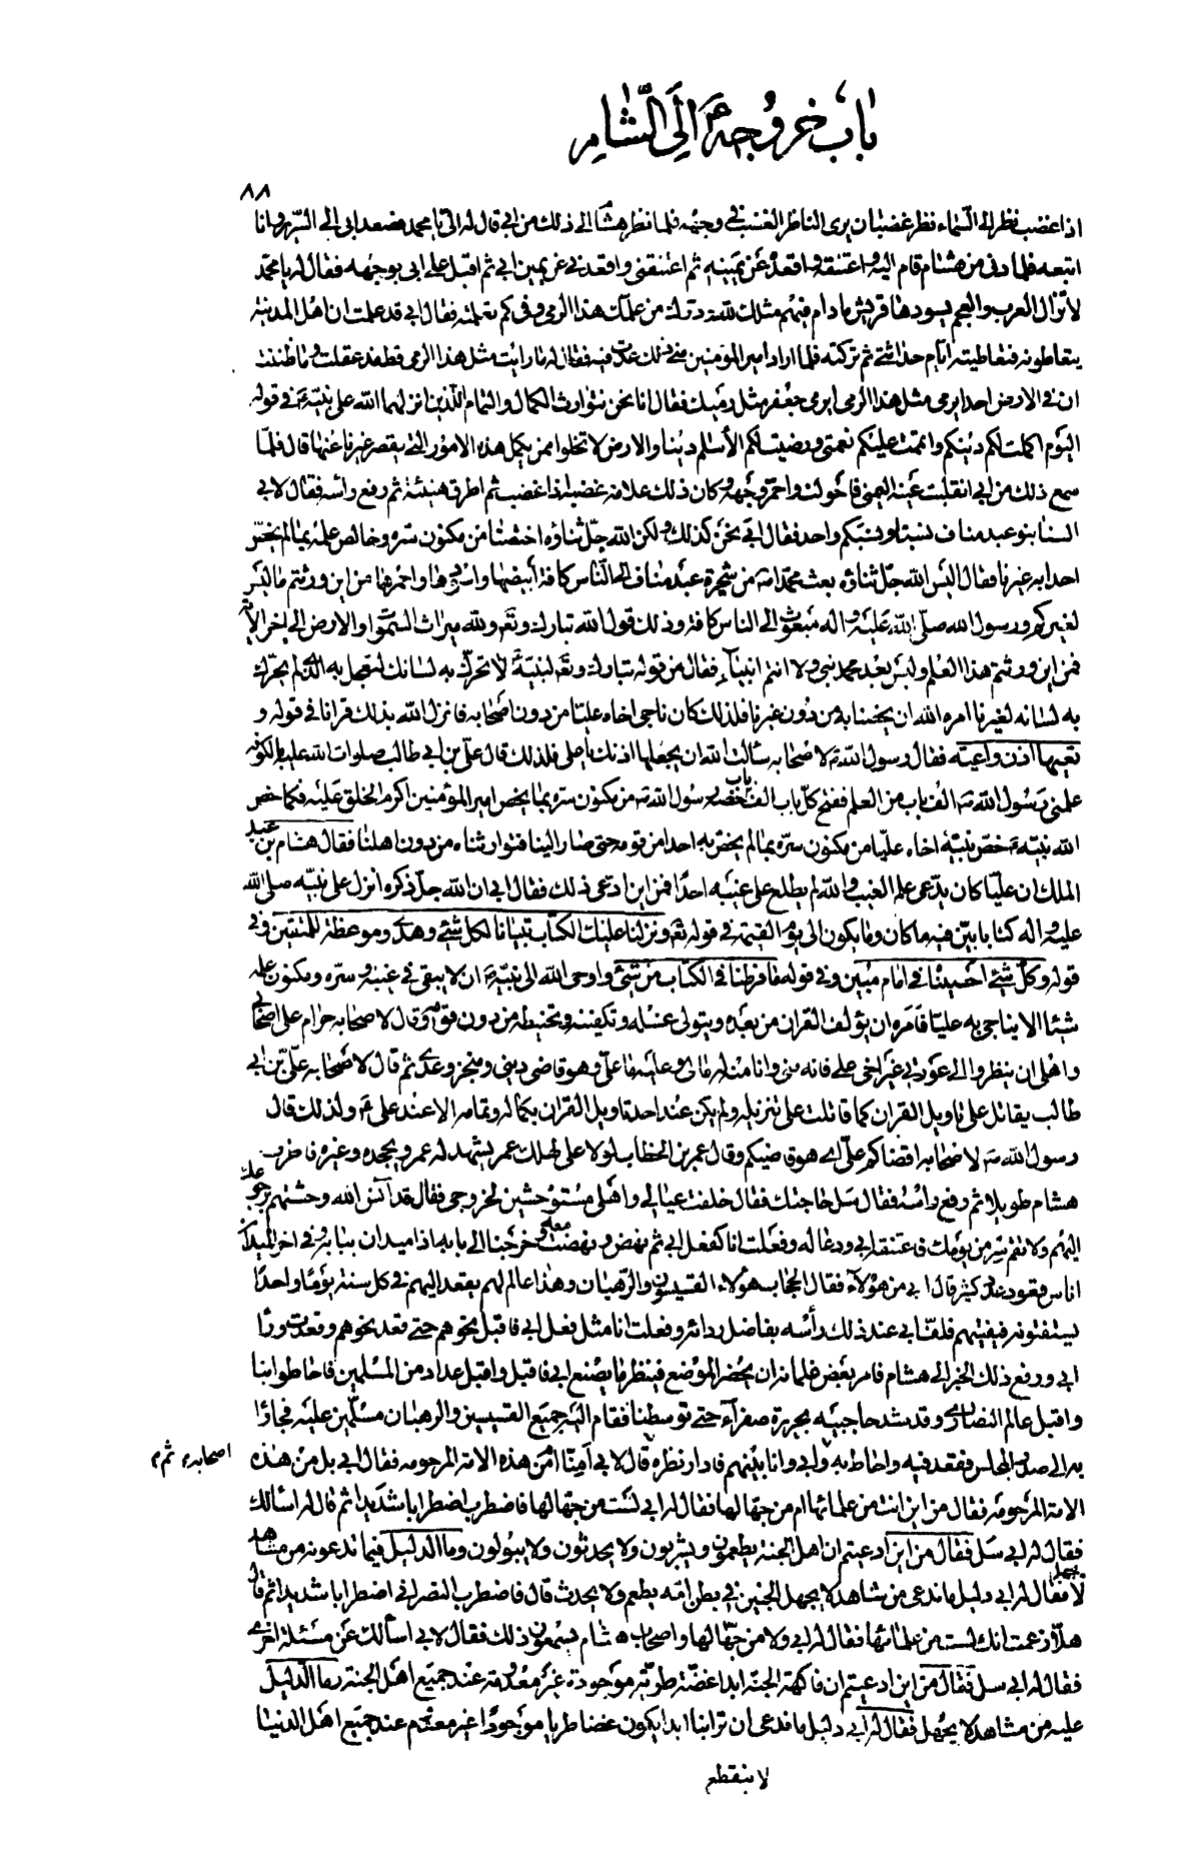 باب خروجه ع إلى الشام
٨٨
اذا غضب نظر الى السماء نظر غضبان يرى الناظر الغضب في وجهه فلما نظر هشام الى ذلك من ابي قال له الي يا محمد فصعد ابي الى السرير وانا
اتبعه فلما دنى من هشام قام اليه واعتنقه واقعده عن يمينه ثم اعتنقني واقعدني عن يمين ابي ثم اقبل على ابي بوجهه فقال له يا محمد
لا تزال العرب والعجم يسودها قريش ما دام فيهم مثلك لله درك من علمك هذا الرمي وفي كم تعلمته فقال ابي قد علمت ان اهل المدينة
يتعاطونه فتعاطيته ايام حداثتي ثم تركته فلما اراد امير المؤمنين مني ذلك عدت فيه فقال له ما رايت مثل هذا الرمي قط مذ عقلت وما ظننت
ان في الارض احدا يرمي مثل هذا الرمي ايرمي جعفر مثل رميك فقال انا نحن نتوارث الكمال والتمام الذين انزلهما الله على نبيه ع في قوله
اليوم اكملت لكم دينكم واتممت عليكم نعمتي ورضيت لكم الاسلم دينا والارض لا تخلوا ممن يكمل هذه الامور التي يقصر غيرنا عنها قال فلما
سمع ذلك من ابي انقلبت عينه اليمنى فاحولت واحمر وجهه وكان ذلك علامة غضبه اذا غضب ثم اطرق هنيئة ثم رفع راسه فقال لابي
السنا بنو عبد مناف نسبنا ونسبكم واحد فقال ابي نحن كذلك ولكن الله جل ثناؤه اختصنا من مكنون سره وخالص علمه بما لم يختص
احدا به غيرنا فقال اليس الله جل ثناؤه بعث محمدا ص من شجرة عبد مناف الى الناس كافة ابيضها واسودها واحمرها من اين ورثتم ما ليس
لغيركم ورسول الله صلى الله عليه واله مبعوث الى الناس كافة وذلك قول الله تبارك وتع ولله ميراث السموات والارض الى اخر الاية
فمن اين ورثتم هذا العلم وليس بعد محمد نبي ولا انتم انبياء فقال من قوله تبارك وتع لنبيه لا تحرك به لسانك لتعجل به الذي لم يحرك
به لسانه لغيرنا امره الله ان يخصنا به من دون غيرنا فلذلك كان ناجى اخاه عليا من دون اصحابه فانزل الله بذلك قرانا في قوله و
تعيها اذن واعية فقال رسول الله ص لاصحابه سألت الله ان يجعلها اذنك يا علي فلذلك قال علي بن ابي طالب صلوات الله عليه بالكوفة
علمني رسول الله ص الف باب من العلم ففتح كل باب الف باب خصه رسول الله ص من مكنون سره بما يخص امير المؤمنين اكرم الخلق عليه فكما خص
الله نبيه ع خص نبيه اخاه عليا من مكنون سره بما لم يخص به احدا من قومه حتى صار الينا فتوارثناه من دون اهلنا فقال هشام بن عبد
الملك ان عليا كان يدعي علم الغيب والله لم يطلع على غيبه احدا فمن اين ادعى ذلك فقال ابي ان الله جل ذكره انزل على نبيه صلى الله
عليه واله كتابا بين فيه ما كان وما يكون الى يوم القيمة في قوله تع ونزلنا عليك الكتاب تبيانا لكل شئ وهدى وموعظة للمتقين وفي
قوله وكل شئ احصيناه في امام مبين وفي قوله ما فرطنا في الكتاب من شئ واوحى الله الى نبيه ع ان لا يبقى في غيبه وسره ومكنون علمه
شيئا الا يناجي به عليا فامره ان يؤلف القران من بعده ويتولى غسله وتكفينه وتحنيطه من دون قومه وقال لاصحابه حرام على اصحابي
واهلي ان ينظروا الى عورتي غير اخي علي فانه مني وانا منه له ما لي وعليه ما علي وهو قاضي ديني ومنجز وعدي ثم قال لاصحابه علي بن ابي
طالب يقاتل على تاويل القران كما قاتلت على تنزيله ولم يكن عند احد تاويل القران بكماله وتمامه الا عند علي ع ولذلك قال
رسول الله ص لاصحابه اقضاكم علي اي هو قاضيكم وقال عمر بن الخطاب لولا علي لهلك عمر يشهد له عمر ويجحده غيره فاطرق
هشام طويلا ثم رفع راسه فقال سل حاجتك فقال خلفت عيالي واهلي مستوحشين لخروجي فقال قد آنس الله وحشتهم برجوعك
اليهم ولا تقم سر من يومك فاعتنقه ابي ودعا له وفعلت انا كفعل ابي ثم نهض ونهضت معه وخرجنا الى بابه اذا ميدان ببابه وفي اخر الميدان
اناس قعود عدد كثير قال ابي من هؤلاء فقال الحجاب هؤلاء القسيسون والرهبان وهذا عالم لهم يقعد اليهم في كل سنة يوما واحدا
يستفتونه فيفتيهم فلف ابي عند ذلك رأسه بفاضل ردائه وفعلت انا مثل فعل ابي فاقبل نحوهم حتى قعد نحوهم وقعدت وراء
ابي ورفع ذلك الخبر الى هشام فامر بعض غلمانه ان يحضر الموضع فينظر ما يصنع ابي فاقبل واقبل عداد من المسلمين فاحاطوا بنا
واقبل عالم النصارى وقد شد حاجبيه بحريرة صفراء حتى توسطنا فقام اليه جميع القسيسين والرهبان مسلمين عليه فجاؤا
به الى صدر المجلس فقعد فيه واحاط به وابي وانا بينهم فادار نظره قال لابي امنا ام من هذه الامة المرحومة فقال ابي بل من هذه
اصحابه ثم
الامة المرحومة فقال من اين انت من علمائها ام من جهالها فقال له ابي لست من جهالها فاضطرب اضطرابا شديدا ثم قال له اسألك
فقال له ابي سل فقال من اين ادعيتم ان اهل الجنة يطعمون ويشربون ولا يحدثون ولا يبولون وما الدليل فيما تدعونه من شاهد
لا يجهل فقال له ابي دليل ما ندعي من شاهد لا يجهل الجنين في بطن امه يطعم ولا يحدث قال فاضطرب النصراني اضطرابا شديدا ثم قال
هلا زعمت انك لست من علمائها فقال له ابي ولا من جهالها واصحاب هشام يسمعون ذلك فقال لابي اسألك عن مسئلة اخرى
فقال له ابي سل فقال من اين ادعيتم ان فاكهة الجنة ابدا غضة طرية موجودة غير معدومة عند جميع اهل الجنة وما الدليل
عليه من مشاهد لا يجهل فقال له ابي دليل ما ندعي ان ترابنا ابدا يكون غضا طريا موجودا غير معدوم عند جميع اهل الدنيا
لا ينقطع